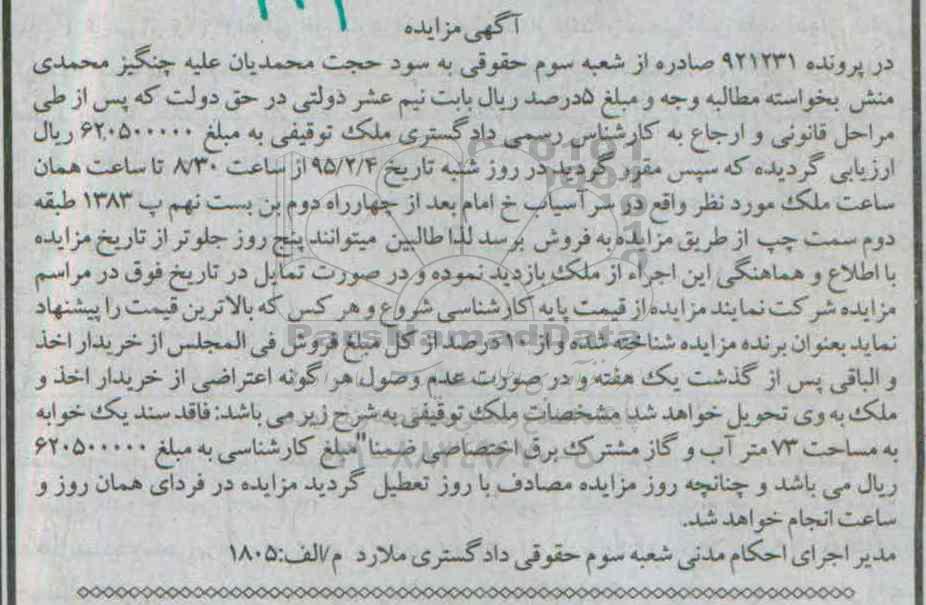 آگهی مزایده
در پرونده ۹۲۱۲۳۱ صادره از شعبه سوم حقوقی به سود حجت محمدیان علیه چنگیز محمدی
منش بخواسته مطالبه وجه و مبلغ ۵درصد ریال بابت نیم عشر دولتی در حق دولت که پس از طی
مراحل قانونی و ارجاع به کارشناس رسمی دادگستری ملک توقیفی به مبلغ ۶۲۰۵۰۰۰۰۰ ریال
ارزیابی گردیده که سپس مقرر گردید در روز شنبه تاریخ ۹۵/۲/۴ از ساعت ۸/۳۰ تا ساعت همان
ساعت ملک مورد نظر واقع در سرآسیاب خ امام بعد از چهارراه دوم بن بست نهم پ ۱۳۸۳ طبقه
دوم سمت چپ از طریق مزایده به فروش برسد لذا طالبین میتوانند پنج روز جلوتر از تاریخ مزایده
با اطلاع و هماهنگی این اجراء از ملک بازدید نموده و در صورت تمایل در تاریخ فوق در مراسم
مزایده شرکت نمایند مزایده از قیمت پایه کارشناسی شروع و هر کس که بالاترین قیمت را پیشنهاد
نماید بعنوان برنده مزایده شناخته شده و از ۱۰ درصد از کل مبلغ فروش فی المجلس از خریدار اخذ
و الباقی پس از گذشت یک هفته و در صورت عدم وصول هر گونه اعتراضی از خریدار اخذ و
ملک به وی تحویل خواهد شد مشخصات ملک توقیفی به شرح زیر می باشد: فاقد سند یک خوابه
به مساحت ۷۳ متر آب و گاز مشترک برق اختصاصی ضمنا" مبلغ کارشناسی به مبلغ ۶۲۰۵۰۰۰۰۰
ریال می باشد و چنانچه روز مزایده مصادف با روز تعطیل گردید مزایده در فردای همان روز و
ساعت انجام خواهد شد.
مدیر اجرای احکام مدنی شعبه سوم حقوقی دادگستری ملارد م/الف:۱۸۰۵
ParsNamadData